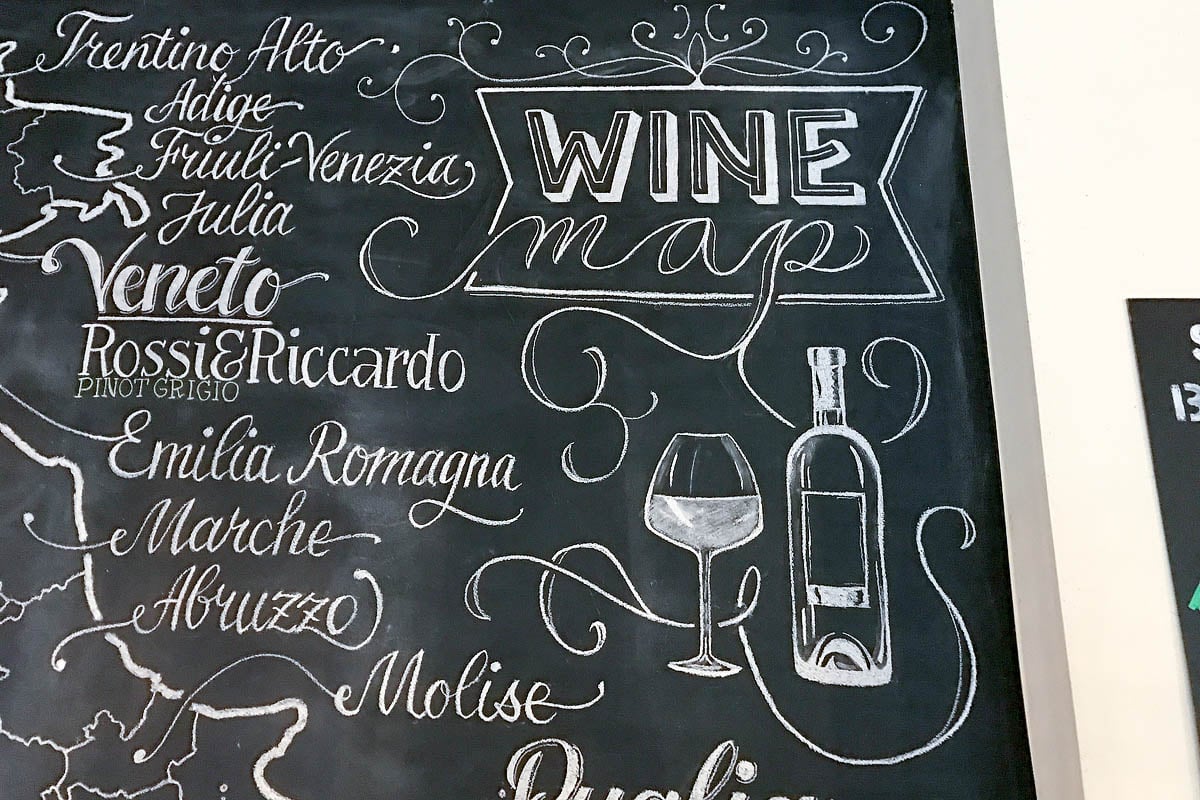 Trentino Alto
Adige
Friuli-Venezia
Julia
Veneto
Rossi&Riccardo
PINOT GRIGIO
Emilia Romagna
Marche
Abruzzo
Molise
Puglia
WINE
map